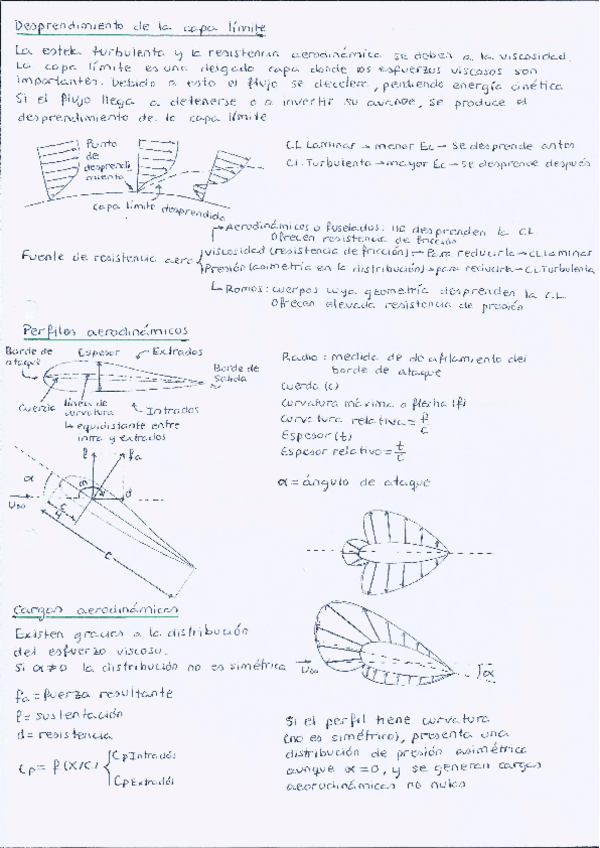 Desprendimiento de la capa límite
La estela turbulenta y la resistencia aerodinámica se deben a la viscosidad.
La capa límite es una delgada capa donde los esfuerzos viscosos son
importantes. Debido a esto el flujo se decelera, perdiendo energía cinética
Si el flujo llega a detenerse o a invertir su avance, se produce el
desprendimiento de la capa límite
Punto
de
desprendi
miento
capa límite desprendida
C.L Laminar → menor Ec → se desprende antes
C.L. Turbulenta → mayor Ec → se desprende después
Aerodinámicos o fuselados: no desprenden la C.L
Ofrecen resistencia de fricción
Fuente de resistencia aero
Viscosidad (resistencia de fricción) → Para reducirla → CL Laminar
Presión (asimetría en la distribución) → para reducirla → C.L Turbulenta
Romos: cuerpos cuya geometría desprenden la C.L
Ofrecen elevada resistencia de presión
Perfiles aerodinámicos
Borde de
ataque
Espesor
Extrados
Borde de
Salida
Cuerda
Línea de
curvatura
Intrados
↳ equidistante entre
intra y extrados
Radio: medida de de afilamiento del
borde de ataque
Cuerda (c)
Curvatura máxima o flecha (f)
Curvatura relativa = f/c
Espesor (t)
Espesor relativo = t/c
α = ángulo de ataque
l
fa
α
m
d
U∞
c/4
c
Cargas aerodinámicas
Existen gracias a la distribución
del esfuerzo viscoso.
Si α≠0 la distribución no es simétrica
U∞
α
fa = fuerza resultante
l = sustentación
d = resistencia
Cp = f(X/C) { Cp Intradós
Cp Extradós
Si el perfil tiene curvatura
(no es simétrico), presenta una
distribución de presión asimétrica
aunque α=0, y se generan cargas
aeorodinámicas no nulas